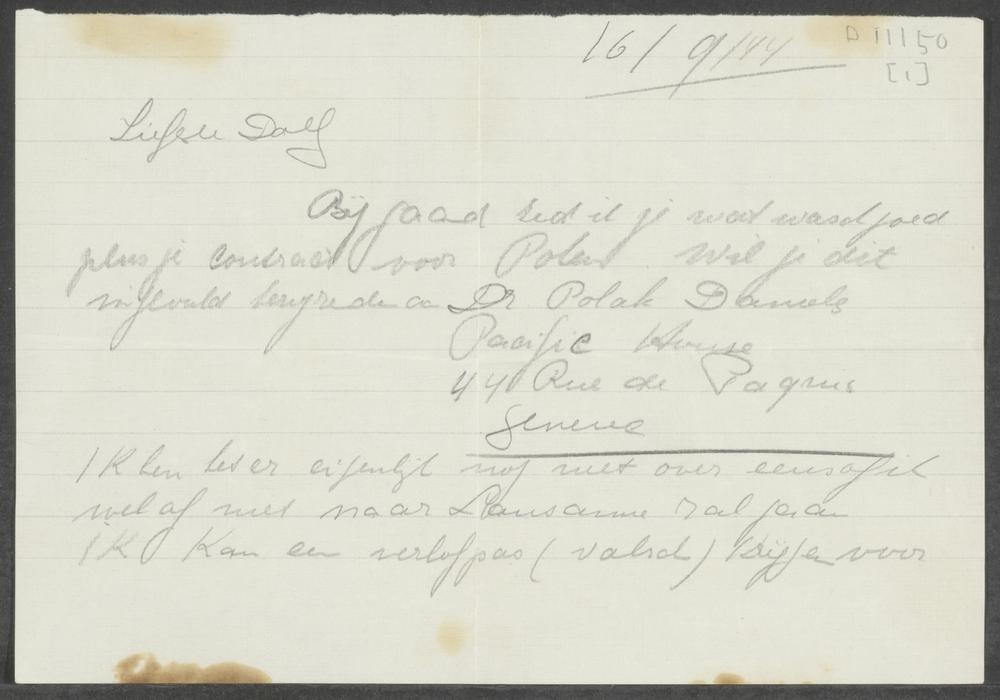 16/9/44
D 11150
[1]
Liefste Dolf
Bijgaand zed ik je wat waschgoed
plus je contract voor Polen. Wil je dit
ingevuld terugzenden aan Dr Polak Daniels
Pacific House
44 Rue de Paquis
Geneve
IK ben het er eigenlijk nog niet over eens of ik
wel of niet naar Lausanne zal gaan
IK Kan een verlofpas (valsch) krijgen voor